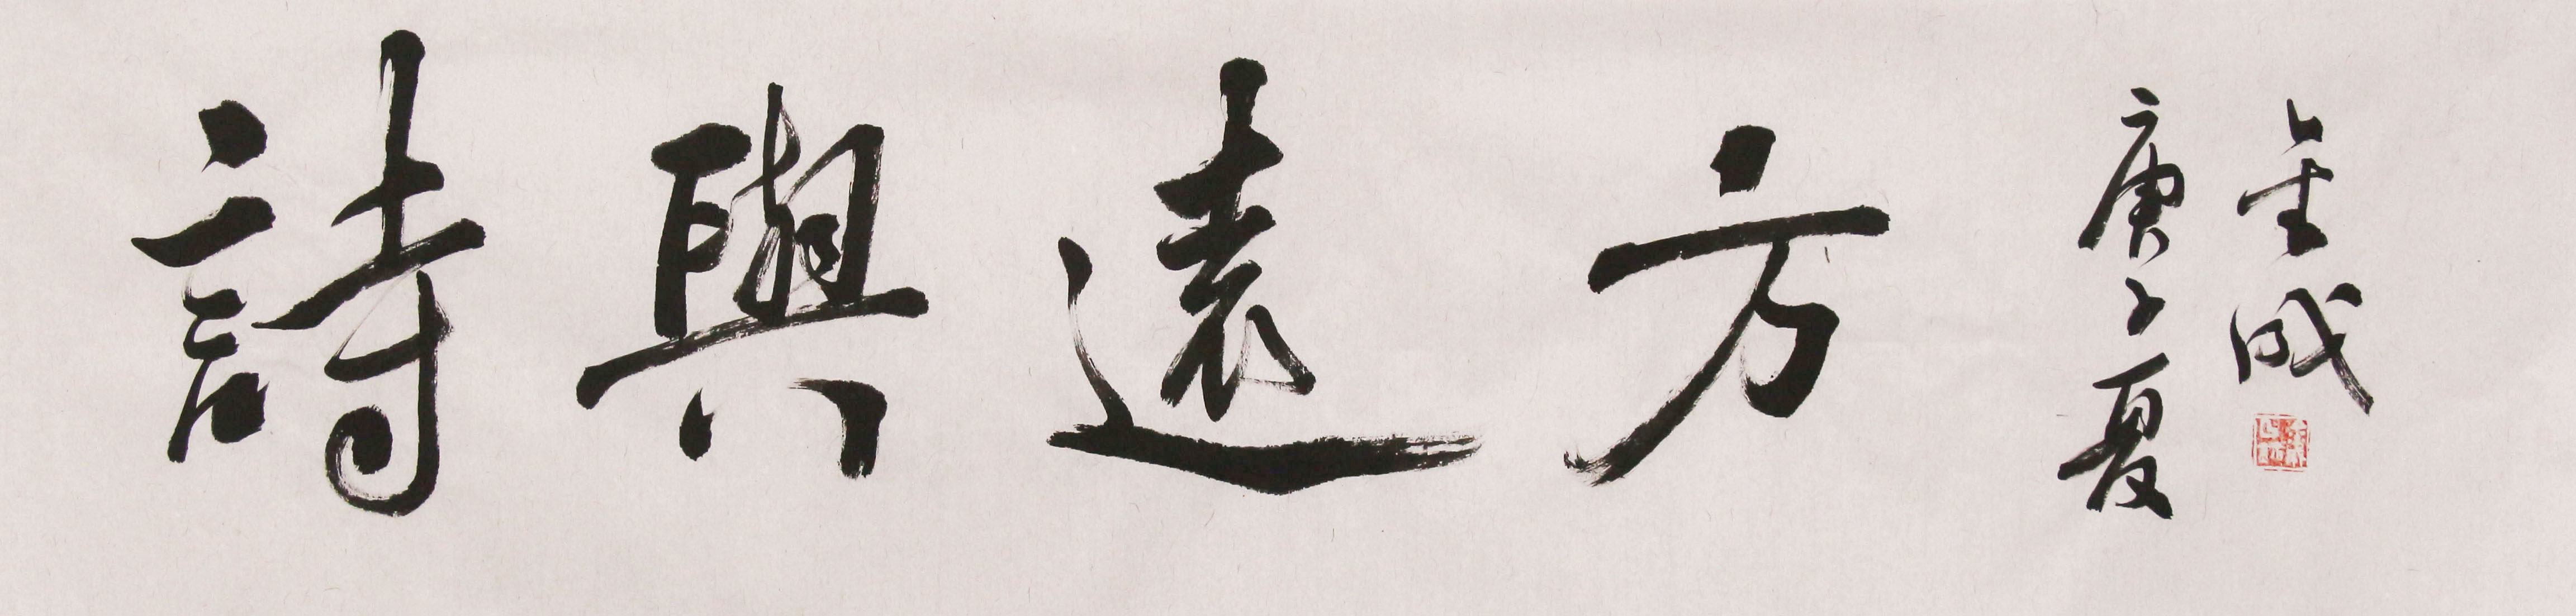 詩與遠方
庚子夏
金成